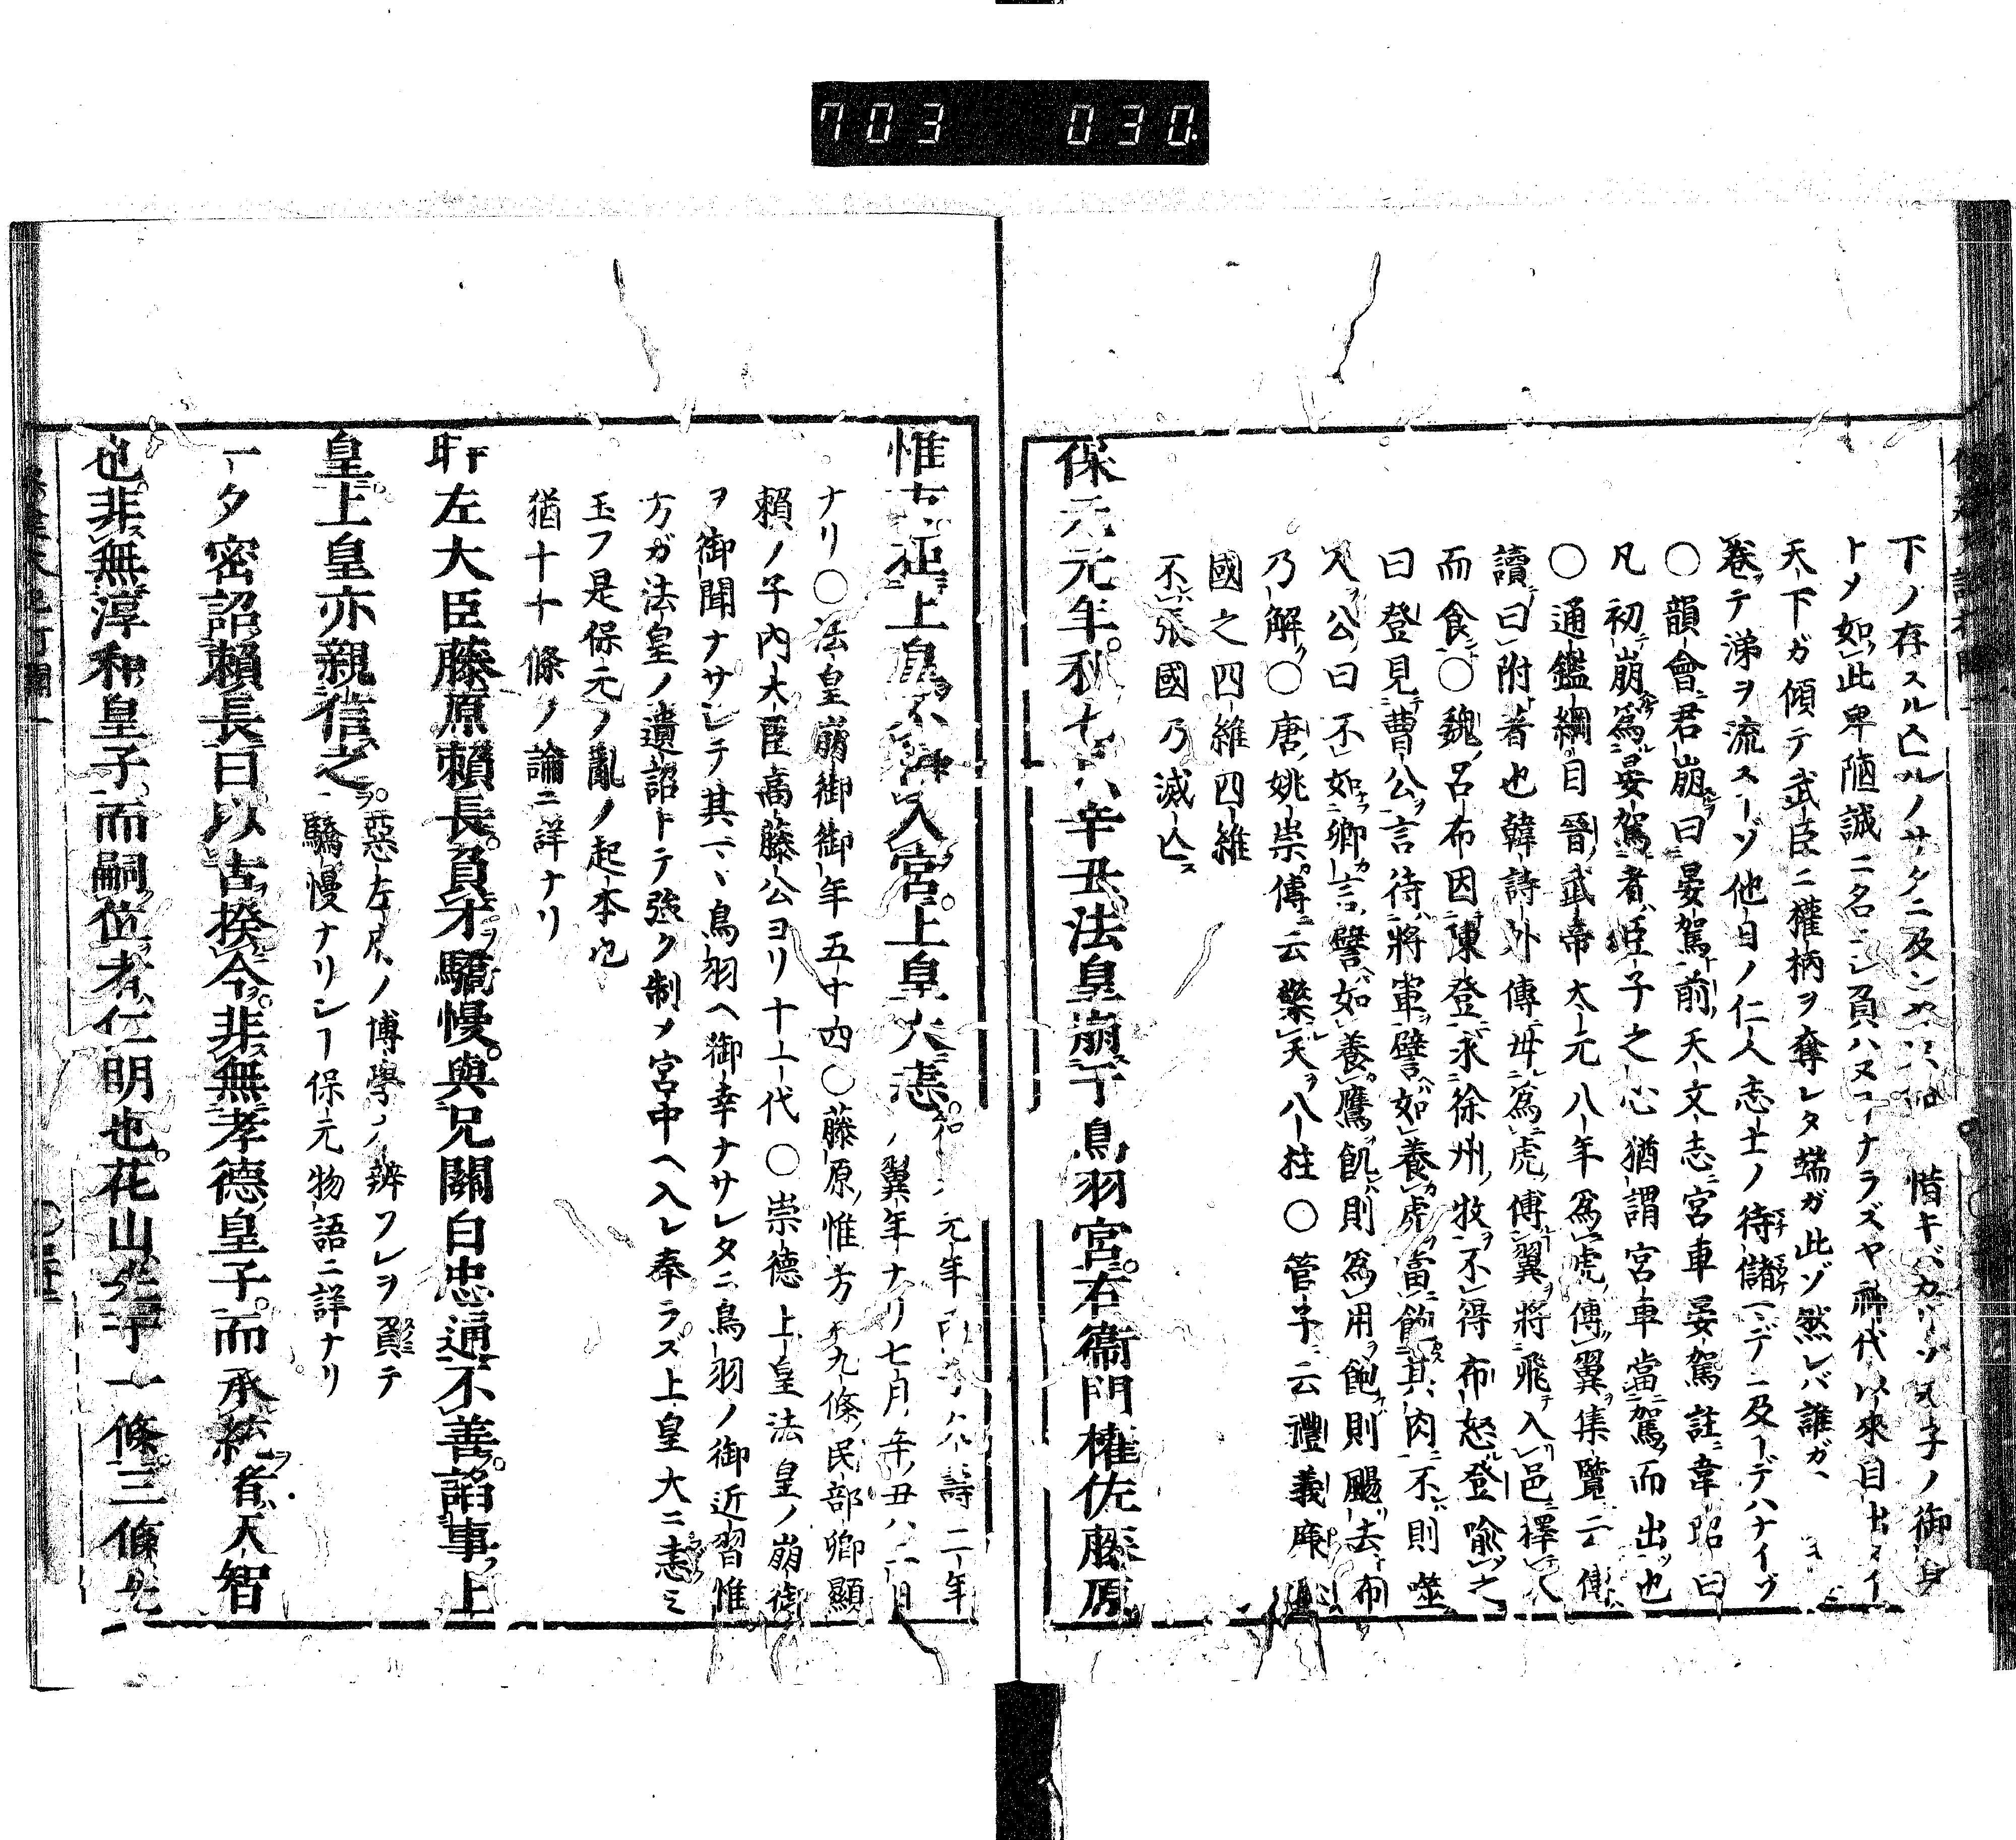 703 030
下ノ存スル亾ルノサタニ及ン 惜キバカリゾ天子ノ御身
トメ如此卑陋誠ニ名ニシ負ハヌヿナラズヤ神代以來目出タイ
天下ガ傾テ武臣ニ權柄ヲ奪レタ端ガ此ゾ然レバ誰ガ
卷ヲテ涕ヲ流スーゾ他日ノ仁人志士ノ待儲ヿデニ及ーデハナイゾ
○韻會君崩曰晏駕前天文志宮車晏駕註韋昭曰
凡初崩爲晏駕者臣子之心猶謂宮車當駕而出也
○通鑑綱目晉武帝太元八年爲虎傅翼集覽云傅
讀曰附者也韓詩外傳毋爲虎傅翼將飛入邑擇人
而食○魏呂布因陳登求徐州牧不得布怒登喩之
曰登見曹公言待將軍譬如養虎當飽其肉不則噬
人公曰不如卿言譬如養鷹飢則爲用飽則颺去布
乃解○唐姚崇傳云檠天八柱○管子云禮義廉
國之四維四維
不張國乃滅亾
保元元年秋七 辛丑法皇崩于鳥羽宮右衞門權佐藤原
惟 上皇不 入宮上皇大恚
元年 壽二年
ノ翼年ナリ七月 辛丑ハ二日
ナリ○法皇崩御御年五十四○藤原惟方 九條民部卿顯
賴ノ子内大臣高藤公ヨリ十一代○崇德上皇法皇ノ崩御
ヲ御聞ナサレテ其 鳥羽ヘ御幸ナサレタニ鳥羽ノ御近習惟
方ガ法皇ノ遺詔トテ強ク制メ宮中ヘ入レ奉ラズ上皇大ニ恚ミ
玉フ是保元ノ亂ノ起本也
猶十十條ノ論ニ詳ナリ
左大臣藤原賴長負才驕慢與兄關白忠通不善諂事上
皇上皇亦親信之
惡左府ノ博學 辨フレヲ負テ
驕慢ナリシー保元物語ニ詳ナリ
一夕密詔賴長曰以古揆今非無孝德皇子而承統者天智
也非無淳和皇子而嗣位者仁明也花山先于一條三條先